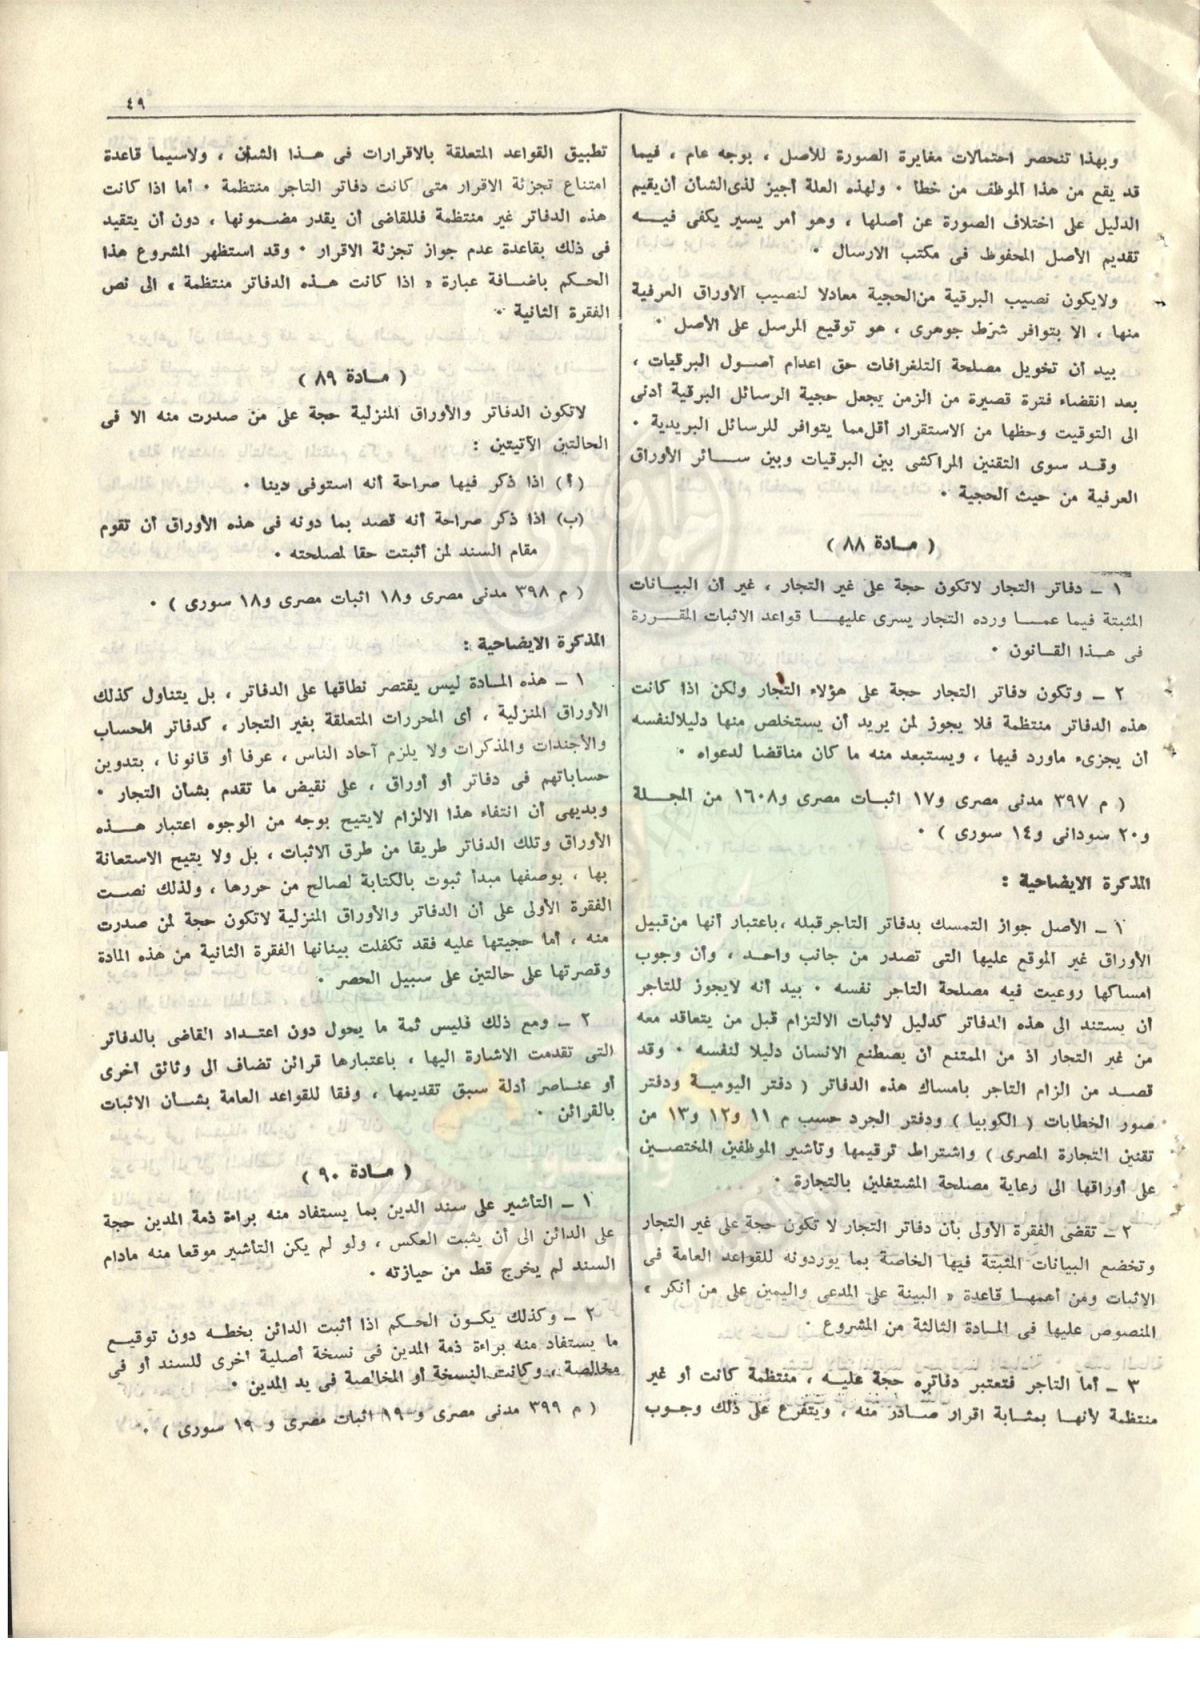 ٤٩
وبهذا تنحصر احتمالات مغايرة الصورة للأصل ، بوجه عام ، فيما
قد يقع من هذا الموظف من خطأ ٠ ولهذه العلة أجيز لذى الشأن أن يقيم
الدليل على اختلاف الصورة عن أصلها ، وهو أمر يسير يكفى فيــه
تقديم الأصل المحفوظ فى مكتب الارسال ٠
ولايكون نصيب البرقية من الحجية معادلا لنصيب الأوراق العرفية
منها ، الا بتوافر شرط جوهرى ، هو توقيع المرسل على الأصل ٠
بيد أن تخويل مصلحة التلغرافات حق اعدام أصــول البرقيات ،
بعد انقضاء فترة قصيرة من الزمن يجعل حجية الرسائل البرقية أدنى
الى التوقيت وحظها من الاستقرار أقل مما يتوافر للرسائل البريدية ٠
وقــد سوى التقنين المراكشى بين البرقيات وبين ســائر الأوراق
العرفية من حيث الحجية ٠
( مــادة ٨٨ )
١ ــ دفاتر التجار لاتكون حجة على غير التجار ، غير أن البيانات
المثبتة فيما عمــا ورده التجار يسرى عليهــا قواعد الاثبات المقــررة
فى هــذا القــانون ٠
٢ ــ وتكون دفاتر التجار حجة على هؤلاء التجار ولكن اذا كانت
هذه الدفاتر منتظمة فلا يجوز لمن يريد أن يستخلص منها دليلا لنفسه
أن يجزىء ماورد فيها ، ويستبعد منه ما كان مناقضا لدعواه ٠
( م ٣٩٧ مدنى مصرى و١٧ اثبــات مصرى و١٦٠٨ من المجــلة
و٢٠ سودانى و١٤ سورى ) ٠
المذكرة الايضاحية :
١ ــ الأصل جواز التمسك بدفاتر التاجر قبله ، باعتبار أنها من قبيل
الأوراق غير الموقع عليها التى تصدر من جانب واحــد ، وأن وجوب
امساكها روعيت فيه مصلحة التاجر نفسه ٠ بيد أنه لايجوز للتاجر
أن يستند الى هذه الدفاتر كدليل لاثبات الالتزام قبل من يتعاقد معه
من غير التجار اذ من الممتنع أن يصطنع الانسان دليلا لنفسه ٠ وقد
قصــد من الزام التاجر بامساك هذه الدفاتر ( دفتر اليومية ودفتر
صور الخطابات ( الكوبيا ) ودفتر الجرد حسب م ١١ و١٢ و١٣ من
تقنين التجارة المصرى ) واشتراط ترقيمها وتأشير الموظفين المختصــين
على أوراقها الى رعاية مصلحة المشتغلين بالتجارة ٠
٢ ــ تقضى الفقرة الأولى بأن دفاتر التجار لا تكون حجة على غير التجار
وتخضع البيانات المثبتة فيها الخاصة بما يوردونه للقواعد العامة فى
الاثبات ومن أهمهــا قاعدة « البينة على المدعى واليمين على من أنكر »
المنصوص عليها فى المادة الثالثة من المشروع ٠
٣ ــ أما التاجر فتعتبر دفاتره حجة عليــه ، منتظمة كانت أو غير
منتظمة لأنهــا بمثــابة اقرار صــادر منه ، ويتفرع على ذلك وجــوب
تطبيق القواعد المتعلقة بالاقرارات فى هــذا الشأن ، ولاسيما قاعدة
امتناع تجزئة الاقرار متى كانت دفاتر التاجر منتظمة ٠ أما اذا كانت
هذه الدفاتر غير منتظمة فللقاضى أن يقدر مضــمونها ، دون أن يتقيد
فى ذلك بقاعدة عدم جواز تجزئة الاقرار ٠ وقد استظهر المشروع هذا
الحــكم باضــافة عبارة « اذا كانت هــذه الدفاتر منتظمة » الى نص
الفقرة الثانية ٠
( مــادة ٨٩ )
لاتكون الدفاتر والأوراق المنزلية حجة على من صدرت منه الا فى
الحالتين الآتيتين :
(أ) اذا ذكر فيها صراحة أنه استوفى دينا ٠
(ب) اذا ذكر صراحة أنه قصد بما دونه فى هذه الأوراق أن تقوم
مقام السند لمن أثبتت حقا لمصلحته ٠
( م ٣٩٨ مدنى مصرى و١٨ اثبات مصرى و١٨ سورى ) ٠
المذكرة الايضاحية :
١ ــ هذه المــادة ليس يقتصر نطاقها على الدفاتر ، بل يتناول كذلك
الأوراق المنزلية ، أى المحررات المتعلقة بغير التجار ، كدفاتر الحساب
والأجندات والمذكرات ولا يلزم آحاد الناس ، عرفا أو قانونا ، بتدوين
حساباتهم فى دفاتر أو أوراق ، على نقيض ما تقدم بشأن التجار ٠
وبديهى أن انتفاء هذا الالزام لايتيح بوجه من الوجوه اعتبار هــذه
الأوراق وتلك الدفاتر طريقا من طرق الاثبات ، بل ولا يتيح الاستعانة
بها ، بوصفها مبدأ ثبوت بالكتابة لصالح من حررها ، ولذلك نصــت
الفقرة الأولى على أن الدفاتر والأوراق المنزلية لاتكون حجة لمن صدرت
منه ، أما حجيتها عليه فقد تكفلت ببيانها الفقرة الثانية من هذه المادة
وقصرتها على حالتين على سبيل الحصر ٠
٢ ــ ومع ذلك فليس ثمة ما يحول دون اعتــداد القاضى بالدفاتر
التى تقدمت الاشارة اليها ، باعتبارها قرائن تضاف الى وثائق أخرى
أو عنــاصر أدلة سبق تقديمها ، وفقا للقواعد العامة بشــأن الاثبات
بالقرائن ٠
( مــادة ٩٠ )
١ ــ التأشير على سند الدين بما يستفاد منه براءة ذمة المدين حجة
على الدائن الى أن يثبت العكس ، ولو لم يكن التأشير موقعا منه مادام
السند لم يخرج قط من حيازته ٠
٢ ــ وكذلك يكــون الحــكم اذا أثبت الدائن بخطــه دون توقيــع
ما يستفاد منه براءة ذمة المدين فى نسخة أصلية أخرى للسند أو فى
مخالصة ، وكانت النسخة أو المخالصة فى يد المدين ٠
( م ٣٩٩ مدنى مصرى و ١٩ اثبات مصرى و ١٩ سورى ) ٠